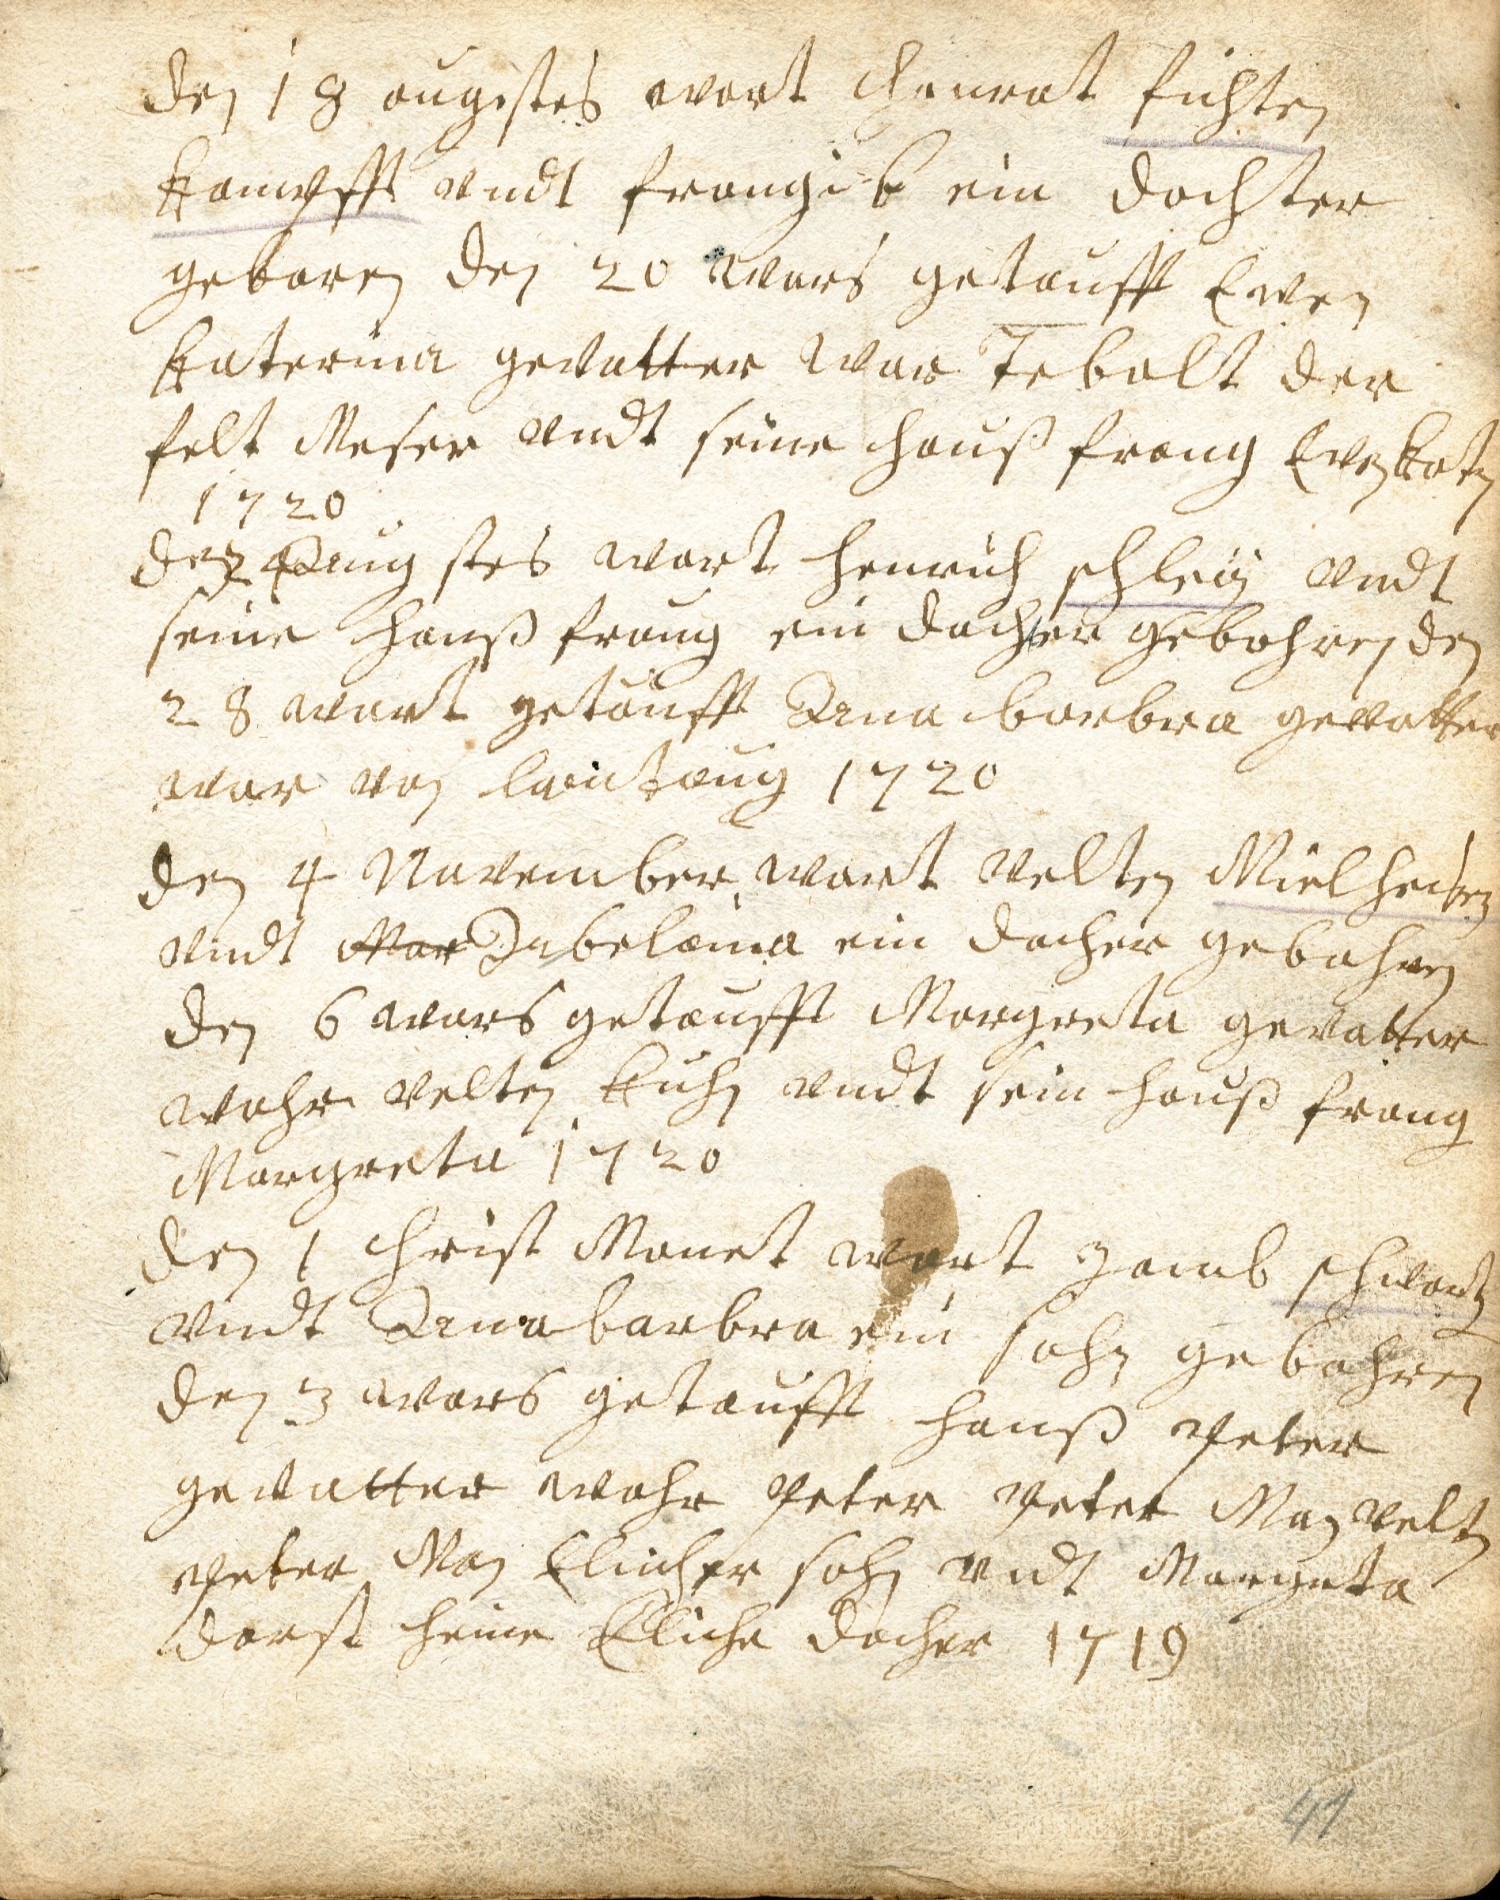 den 18 augistes wart Chonrat fichten
kampfft undt ein dochter
geboren den 20 wars getaufft Even
katerina gevatter war Tebalt der
felt Meser undt seine hauß fraug Even kate
1720
den 24 Augstes wart henrich schleij undt
seine hauß fraug ein docher gebohren den
28 wart getaufft Anna barbra gevatter
war von 1720
den 4 November wart velten Mielheisen
undt ein docher gebohren
den 6 wars getaufft Margreta gevatter
wahr velten kuhn undt sein hauß fraug
Margreta 1720
den 1 christ Monet wart Jacob schwartz
undt Anna barbra ein sohn gebohren
den 3 wars getaufft hanß peter
gevatter wahr peter peter Man velten
peter Man Elicher sohn undt Margreta
dorst heine Eliche docher 1719
41